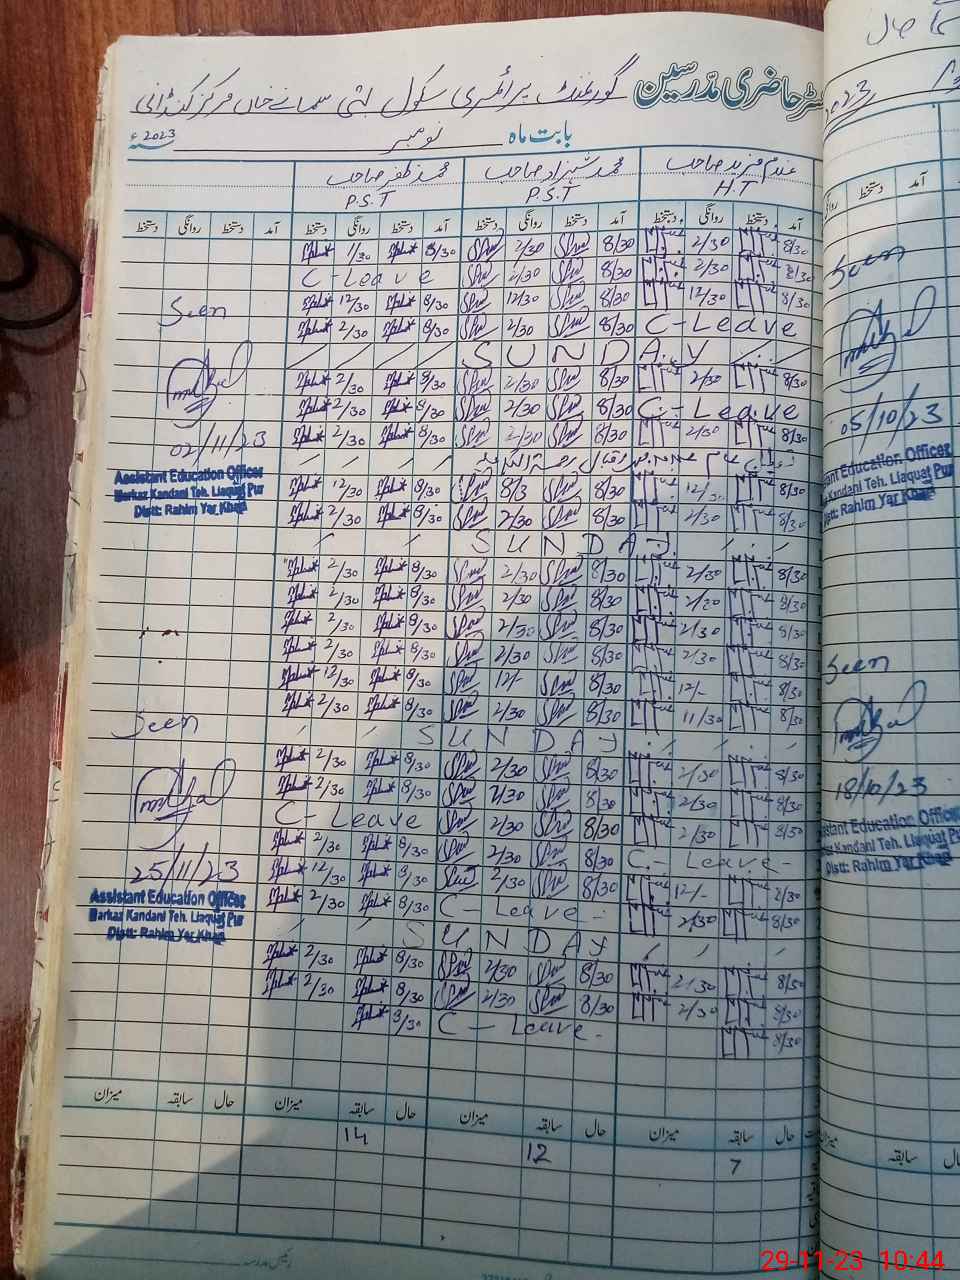 رجسٹر حاضری مدرسین گورنمنٹ پرائمری سکول بستی خان مرکز کنڈانی
بابت ماہ نومبر 2023ء
صاحب محمد شہزاد صاحب محمد ظفر صاحب
H.T P.S.T P.S.T
آمد دستخط روانگی دستخط آمد دستخط روانگی دستخط آمد دستخط روانگی دستخط آمد دستخط روانگی دستخط
8/30 2/30 8/30 2/30 8/30 1/30
8/30 2/30 8/30 2/30 C-Leave
8/30 12/30 8/30 12/30 8/30 12/30
C-Leave 8/30 2/30 8/30 2/30
SUNDAY
8/30 2/30 8/30 2/30 8/30 2/30
C-Leave 8/30 2/30 8/30 2/30
8/30 2/30 8/30 2/30 8/30 2/30
8/30 12/30 8/30 8/3 8/30 12/30
8/30 2/30 8/30 2/30 8/30 2/30
SUNDAY
8/30 2/30 8/30 2/30 8/30 2/30
8/30 2/30 8/30 2/30 8/30 2/30
8/30 2/30 8/30 2/30 8/30 2/30
8/30 2/30 8/30 2/30 8/30 2/30
8/30 12/- 8/30 12/- 8/30 12/30
8/30 11/30 8/30 2/30 8/30 2/30
SUNDAY
8/30 2/30 8/30 2/30 8/30 2/30
8/30 2/30 8/30 2/30 8/30 2/30
8/30 2/30 8/30 2/30 C-Leave
C-Leave 8/30 2/30 8/30 2/30
8/30 12/- 8/30 2/30 8/30 12/30
8/30 2/30 C-Leave 8/30 2/30
SUNDAY
8/30 2/30 8/30 2/30 8/30 2/30
8/30 2/30 8/30 2/30 8/30 2/30
8/30 C-Leave 8/30
Seen
02/11/23
Assistant Education Officer
Markaz Kandani Teh. Liaquat Pur
Distt: Rahim Yar Khan
Seen
25/11/23
Assistant Education Officer
Markaz Kandani Teh. Liaquat Pur
Distt: Rahim Yar Khan
حال سابقہ میزان حال سابقہ میزان حال سابقہ میزان حال سابقہ میزان
7 12 14
2023
دستخط آمد
Seen
05/10/23
Assistant Education Officer
Markaz Kandani Teh. Liaquat Pur
Distt: Rahim Yar Khan
Seen
18/10/23
Assistant Education Officer
Markaz Kandani Teh. Liaquat Pur
Distt: Rahim Yar Khan
سابقہ
29-11-23 10:44